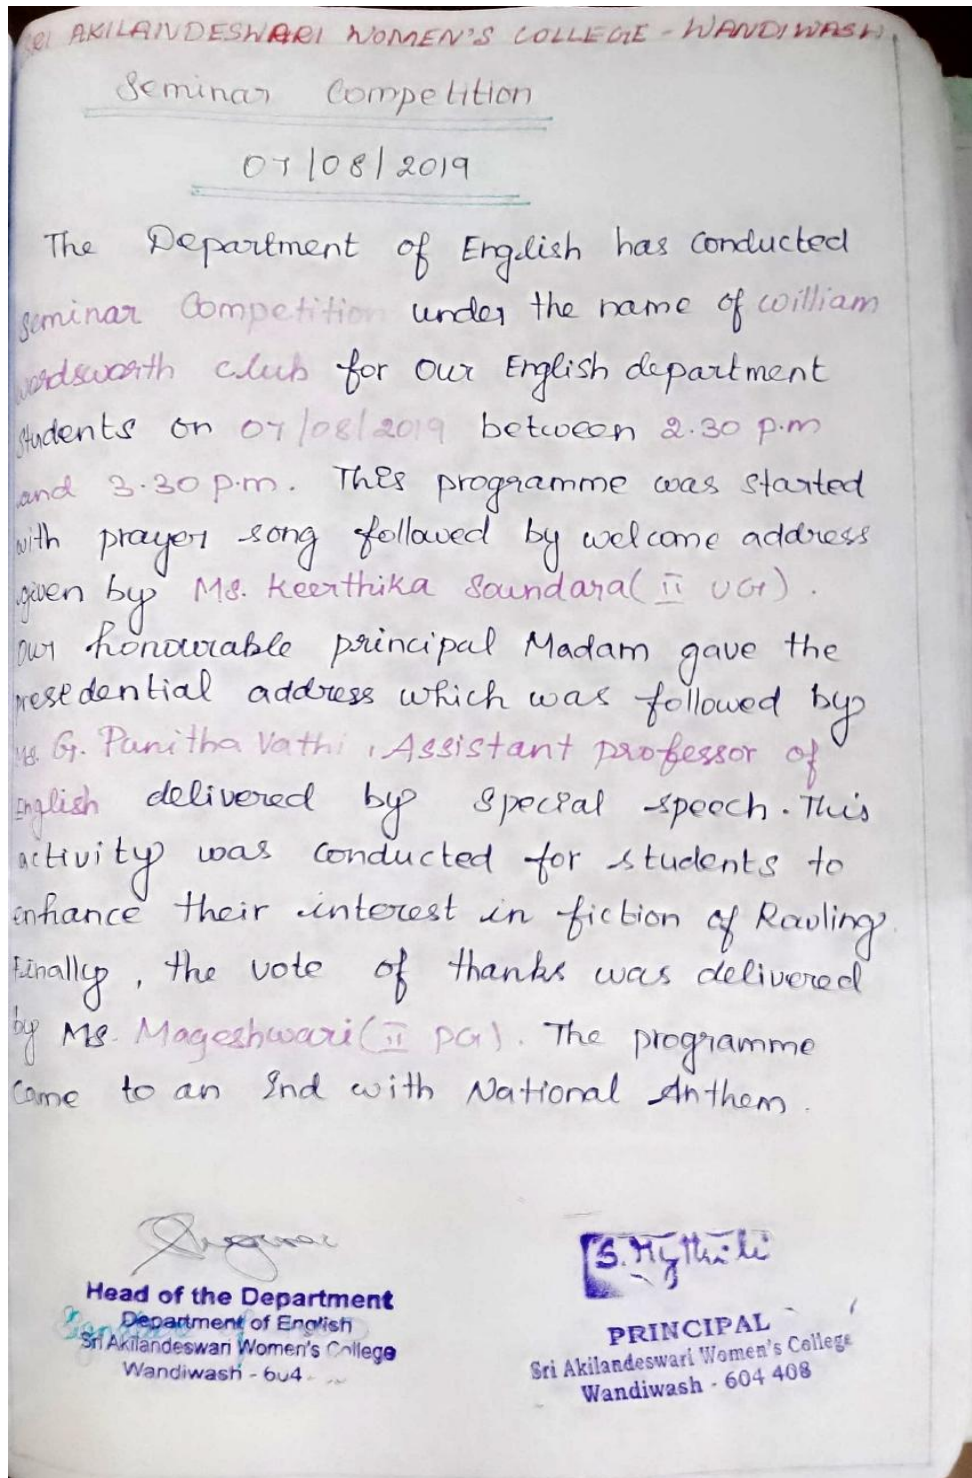 SRI AKILANDESWARI WOMEN'S COLLEGE - WANDIWASH.
Seminar Competition
07/08/2019
The Department of English has conducted
seminar Competition under the name of william
wordsworth club for our English department
students on 07/08/2019 between 2.30 p.m
and 3.30 p.m. This programme was started
with prayer song followed by welcome address
given by Ms. Keerthika Soundara (II UG).
our honourable principal Madam gave the
presedential address which was followed by
Ms. G. Punitha Vathi, Assistant professor of
English delivered by special speech. This
activity was conducted for students to
enhance their interest in fiction of Rauling.
Finally, the vote of thanks was delivered
by Ms. Mageshwari (II PG). The programme
came to an End with National Anthem.
S. Mythili
Head of the Department
Department of English
Sri Akilandeswari Women's College
Wandiwash - 604
PRINCIPAL
Sri Akilandeswari Women's College
Wandiwash - 604 408